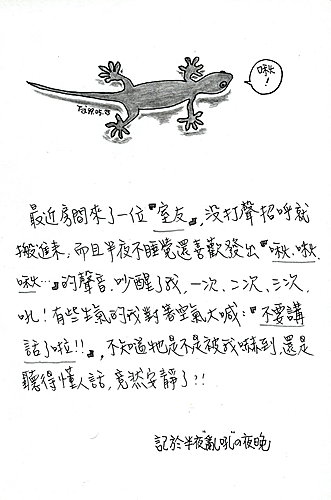 啾!
最近房間來了一位『室友』,没打聲招呼就
搬進來,而且半夜不睡覺還喜歡發出『啾、啾、
啾…』的聲音,吵醒了我,一次、二次、三次,
吼!有些生氣的我對著空氣大喊:『不要講
話了啦!!』,不知道牠是不是被我嚇到,還是
聽得懂人話,竟然安靜了!!
記於半夜"亂吼"の夜晚